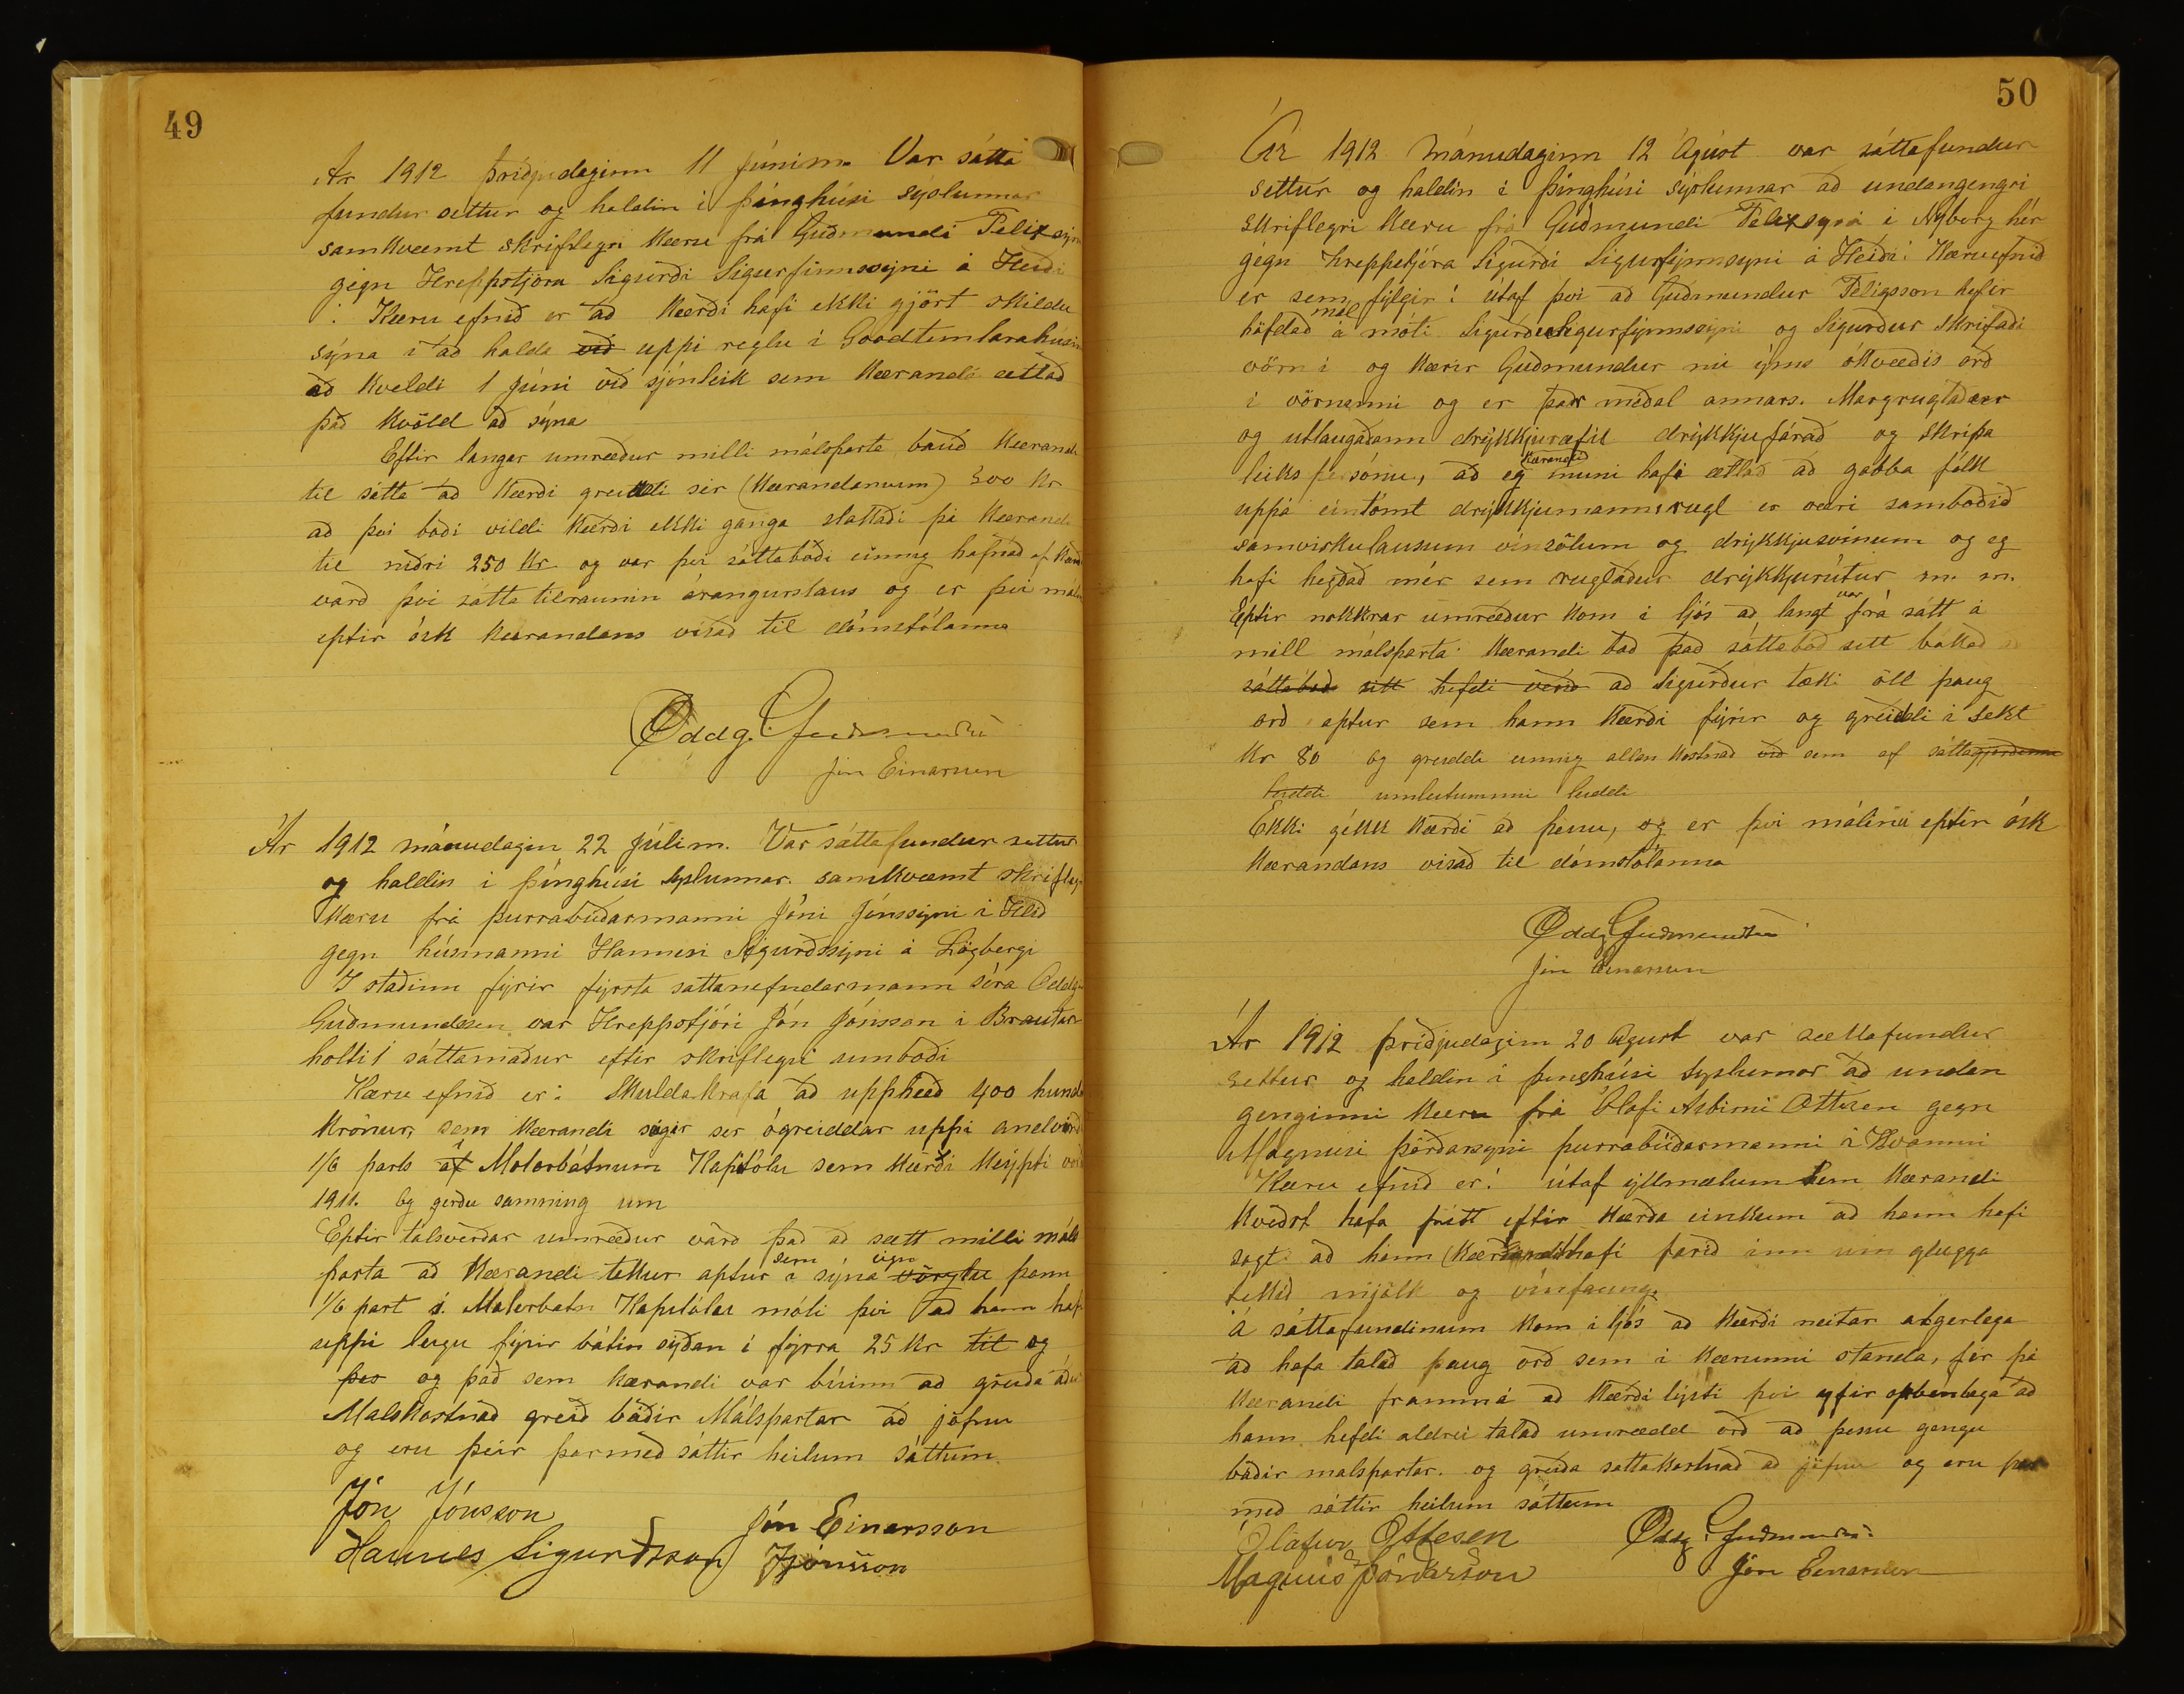 49
Ár 1912 þriðjudaginn 11 júnim. Var sátta
fundur settur og haldin i þinghúsi sýslunnar
samkvæmt skriflegri kæru frá Guðmundi Felixsyni
gegn Hreppstjóra Sigurði Sigurfinnssyni á Heiði
: Kæru efnið er að kærði hafi ekki gjört skildu
sýna i að halda við uppi reglu i Goodtemlarahúsin
að kveldi 1 Júni við sjónleik sem kærandi ætlað
það kvöld að sýna
Eftir langar umræður milli málsparta bauð kærandi
til sátta að kærði greiddi sér (kærandanum) 500 kr
að þvi boði vildi kærði ekki ganga slattaði þá kærandi
til niðri 250 kr og var þvi sáttaboði einnig hafnað af kærð
varð þvi sátta tilraunin árangurslaus og er þvi máli
eptir ósk kærandans visað til dómstólanna
Oddg. Guðmundsen
Jón Einarsson
Ár 1912 mánudagin 22 júlim. Var sáttafundur settur
og haldin i þinghúsi syslunnar. samkvæmt skriflegri
kæru frá þurrabúðarmanni Jóni Jónssyni i Hlið
gegn húsmanni Hannesi Sigurðssyni á Lögbergi
I staðinn fyrir fyrsta sattanefndarmann séra Oddg
Guðmundsen var Hreppstjóri Jón Jónsson i Brautar
holti i sáttamaður eftir skriflegri umboði
Kæru efnið er: Skuldakrafa að upphæð 400 hundr
krónur, sem kærandi segir ser ógreiddar uppi andvirði
1/6 parts af í Motorbátnum Kapitólu sem kærði keypti vor
1911. og gerðu samning um
Eptir talsverðar umræður varð það að sætt milli máls
parta að kærandi tekur aptur sem á sýna eign vörslu þann
1/6 part í Motorbatn Kapitólu móti þvi að hann hafi
uppi leigu fyrir bátin syðan i fyrra 25 kr til og
þes og það sem kærandi var búinn að greiða áður
Malskostnað greið báðir Málspartar að jöfnu
og eru þeir þarmeð sáttir heilum sáttum.
Jón Jónsson
Jón Einarsson
Hannes Sigurðsson
JJónsson
50
Ár 1912 Mánudaginn 12 Ágúst var sáttafundur
settur og haldin i þinghúsi sýslunnar að undangengri
skriflegri kæru frá Guðmundi Felixsyni i Nyborg hér
gegn hreppstjóra Sigurði Sigurfinnsyni á Heiði: Kæruefnið
er sem fylgir: útaf þvi að Guðmundur Felixsson hefir
höfdað mál á móti Sigurði Sigurfynnssyni og Sigurður skrifaði
vörn i og kærir Guðmundur nú ýms ókvæðis orð
i vörninni og er þar meðal annars. Margruglaður
og utlaugaðann drykkjuræfil drykkjufárað og skrípa
leiks persónu, að eg kærandi muni hafi ætlað að gabba fólk
uppá eintómt drykkjumannsrugl er væri samboðið
samviskulausum vínsölum og drykkjusvinum og eg
hafi hegðað mér sem ruglaður drykkjurútur m. m.
Eptir nokkrar umræður kom i ljós að langt var frá sátt á
mill málsparta: Kærandi bað það sáttaboð sett bókað
sáttaboð sitt hefdi verið að Sigurður tæki öll þaug
orð aptur sem hann kærði fyrir og greiddi i sekt
kr 80 og greiddi einnig allan kostnað við sem af sáttagjörðinni
leiddi umleitunnni leiddi
Ekki gekk kærði að þessu, og er þvi málinu eptir ósk
kærandans visað til dómstólanna
Oddg Guðmundsen
Jón Einarsson
Ár 1912 þriðjudagin 20 Agust var sættafundur
settur og haldin i þinghúsi syslunnar að undan
genginni kæru frá Olafi Asbirni Ottesen gegn
Magnusi þórðarsyni þurrabúðarmanni i Hvammi
Kæru efnið er: útaf yllmælum sem kærandi
kveðst hafa frétt eftir kærða einkum að hann hafi
sagt að hann (kærandi) hafi farið inn um glugga
tekið mjólk og vínfaung.
á sáttafundinum kom i ljós að kærði neitar algerlega
að hafa talað þaug orð sem i kærunni standa, fer þá
kærandi frammá að kærði lýsti þvi yfir opbenlega að
hann hefdi aldrei talað umrædd orð að þessu gengu
báðir malspartar. og greiða sattakostnað að jöfnu og eru þar
með sáttir heilum sáttum
Ólafur Ottesen
Oddg. Guðmundsen
Magnús Þórðarson
Jón Einarsson